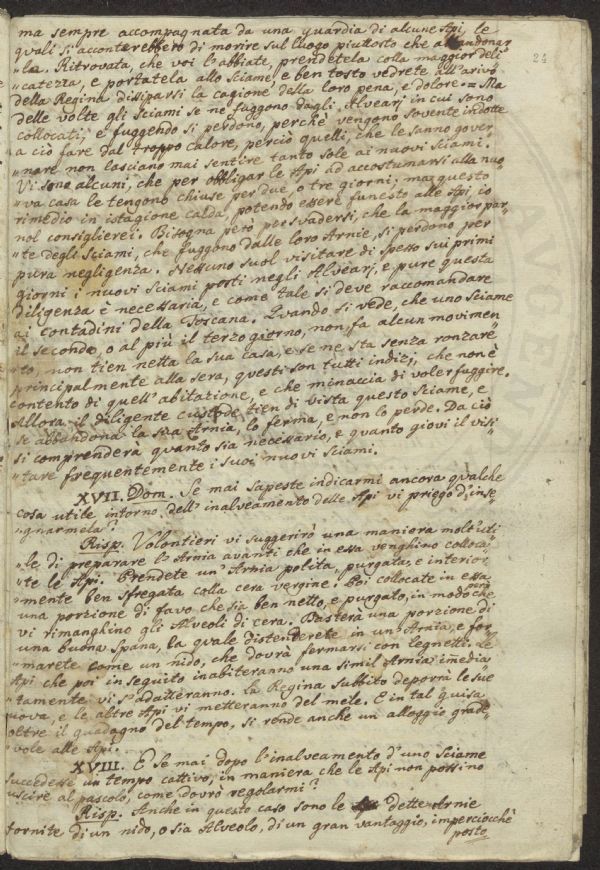 24
ma sempre accompagnata da una guardia di alcune Api, le
quali si acconterebbero di morire sul luogo piuttosto che abbandonar
"la. Ritrovata, che voi l'abbiate, prendetela colla maggior deli
"catezza, e portatela allo Sciame, e ben tosto vedrete all'arivo
della Regina dissiparsi la cagione della loro pena, e dolore. = Ma
delle volte gli Sciami se ne fuggono dagli Alvearj in cui sono
collocati; e fuggendo si perdono, perchè vengono sovente indotte
a ciò fare dal troppo calore, perciò quelli, che le sanno gover
"nare non lasciano mai sentire tanto sole ai nuovi sciami.
Vi sono alcuni, che per obbligar le Api ad accostumarsi alla nuo
"va casa le tengono chiuse per due, o tre giorni: ma questo
rimedio in istagione calda, potendo essere funesto alle Api, io
nol consiglierei. Bisogna però persvadersi, che la maggior par"
"te degli Sciami, che fuggono dalle loro Arnie, si perdono per
pura negligenza. Nessuno suol visitare di spesso sui primi
giorni i nuovi Sciami posti negli Alvearj, e pure questa
diligenza è necessaria, e come tale si deve raccomandare
ai Contadini della Toscana. Quando si vede, che uno Sciame
il secondo, o al più il terzo giorno, non fa alcun movimen"
"to, non tien netta la sua casa, e se ne sta senza ronzare
principalmente alla sera, questi son tutti indizj, che non è
contento di quell'abitazione, e che minaccia di voler fuggire.
Allora il diligente custode tien di vista questo Sciame, e
se abbandona la sua Arnia, lo ferma, e non lo perde. Da ciò
si comprenderà quanto sia necessario, e quanto giovi il visi"
"tare frequentemente i suoi nuovi Sciami.
XVII. Dom. Se mai sapeste indicarmi ancora qualche
cosa utile intorno dell'inalveamento delle Api vi priego d'inse"
"gnarmela?
Risp. Volontieri vi suggerirò una maniera molt'uti"
"le di preparare l'Arnia avanti che in essa venghino colloca"
"te le Api. Prendete un'Arnia polita, purgata, e interior"
"mente ben sfregata colla cera vergine: Poi collocate in essa
una porzione di favo che sia ben netto, e purgato, in modo però che
vi rimanghino gli Alveoli di cera. Basterà una porzione di
una buona Spana, la quale distenderete in un'Arnia, e for"
"marete come un nido, che dovrà fermarsi con legnetti. Le
Api che poi in seguito inabiteranno una simil Arnia, imedia
"tamente vi s'adatteranno. La Regina subbito deporrà le sue
uova, e le altre Api vi metteranno del mele. E in tal guisa
oltre il guadagno del tempo, si rende anche un alloggio grade"
"vole alle Api.
XVIII. E se mai dopo l'inalveamento d'uno Sciame
succedesse un tempo cattivo, in maniera che le Api non possino
uscire al pascolo, come dovrò regolarmi?
Risp. Anche in questo caso sono le dette Arnie
fornite di un nido, o sia Alveolo, di un gran vantaggio, imperciocchè
posto